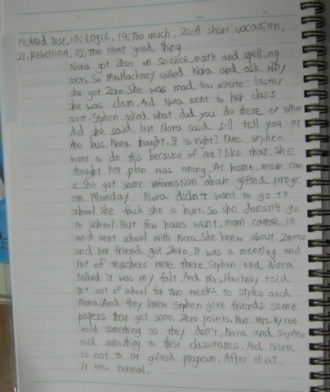 17. Hard test, 18. Logic, 19. Too much, 20. A short vacation,
21. Rebellion, 22. The next good thing
Nora got zero on science, math and spelling
tests. So Mrs. Hackney called Nora and ask why
she got zero. She was mad few minute later
she was clam. And Nora went to her class
room Stphen asked what did you do there or what
did she said, but Nora said I'll tell you at
the bus. Nora thought. It is right? Does Stphen
want to do this because of me? like that. She
thought her plan was wrong. At home, mom came
She got some information about gifted progr
em. Monday. Nora didn't want to go to
school. She fack she is hurt. So she doesn't go
to school. But few hours went, mom came in
and went school with Nora. She knew about zeros
and her friend got zero. It was a meeting and
lot of teachers were there, Stphen and Nora
talked it was my falt. And Mrs. Hackney told
get out of school for two weeks to Stphen and
Nora. And they knew Stphen give friends some
papers that get some zero points. But Mrs. Byrne
told something so they don't. Nora and Stephen
told something to their classmates. And Nora
is not to go gifted program. After that,
it was normal.